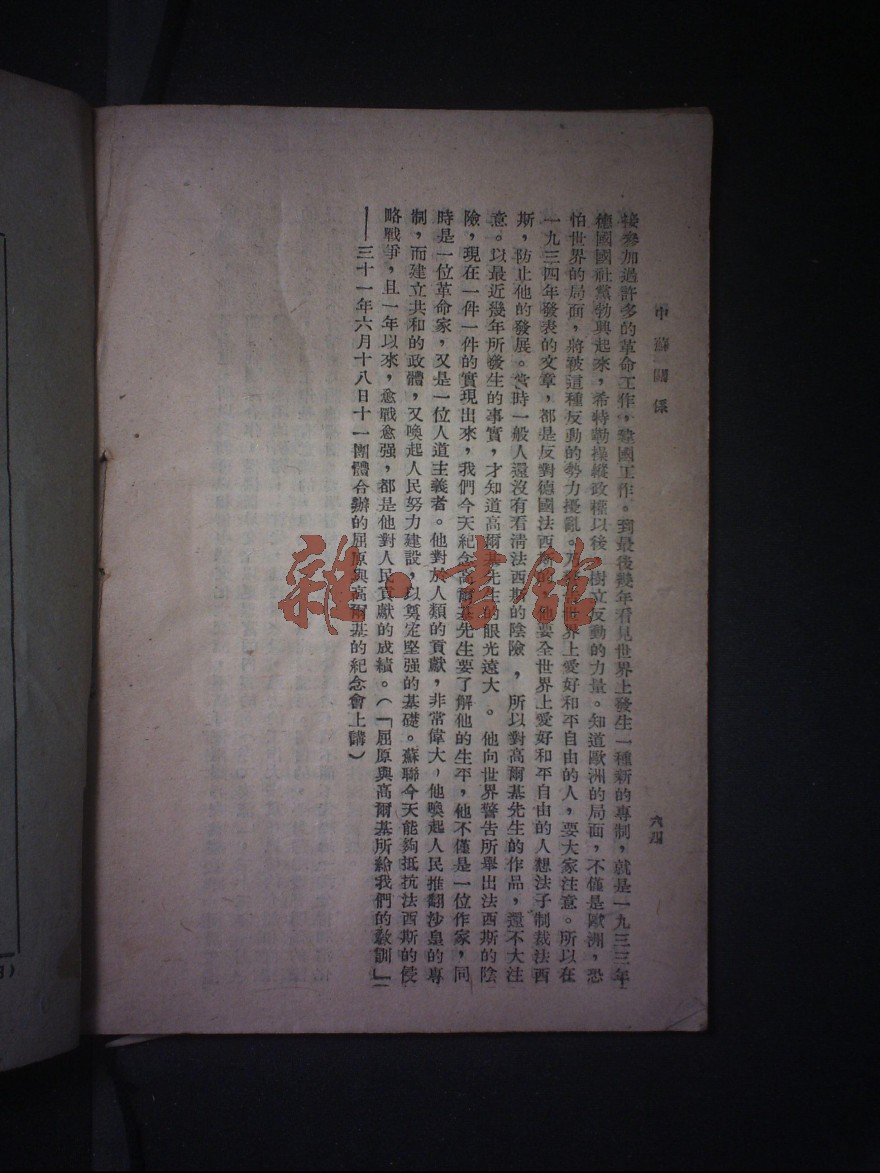 中蘇關係
六四
接參加過許多的革命工作，建國工作。到最後幾年看見世界上發生一種新的專制，就是一九三三年
德國國社黨勃興起來，希特勒操縱政權以後，樹立反動的力量。知道歐洲的局面，不僅是歐洲，恐
怕世界的局面，將被這種反動的勢力擾亂。世界上愛好和平自由的人，要大家注意。所以在
一九三四年發表的文章，都是反對德國法西斯的，他要全世界上愛好和平自由的人想法子制裁法西
斯，防止他的發展。當時一般人還沒有看清法西斯的陰險，所以對高爾基先生的作品，還不大注
意。以最近幾年所發生的事實，才知道高爾基先生的眼光遠大。他向世界警告所舉出法西斯的陰
險，現在一件一件的實現出來，我們今天紀念高爾基先生要了解他的生平，他不僅是一位作家，同
時是一位革命家，又是一位人道主義者。他對於人類的貢獻，非常偉大，他喚起人民推翻沙皇的專
制，而建立共和的政體，又喚起人民努力建設，以奠定堅强的基礎。蘇聯今天能夠抵抗法西斯的侵
略戰爭，且一年以來，愈戰愈强，都是他對人民貢獻的成績。（「屈原與高爾基所給我們的教訓」
——三十一年六月十八日十一團體合辦的屈原與高爾基的紀念會上講）
雜·書館